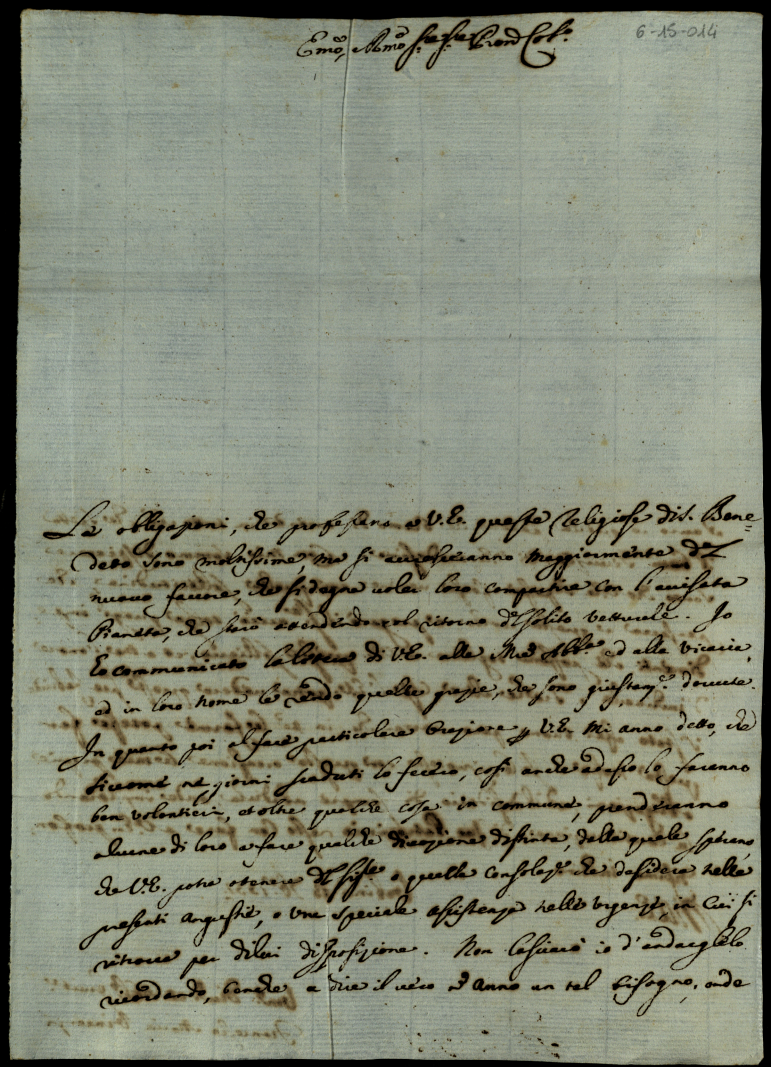 6-15-014
Emo, Rmo Sig.r Sig.r Pron Col.mo
Le obligazioni, che professano a V.E. queste Religiose di S. Bene=
detto sono moltissime, ma si accresceranno maggiormente dal
nuovo favore, che si degna voler loro compartire con l'avvisata
Pianeta, che starò attendendo col ritorno del solito vetturale. Io
ho communicato la lettera di V.E. alla Mre Abb.a ed alla vicaria,
ed in loro nome le rendo quelle grazie, che sono giustam.te dovute.
In quanto poi al fare particolare Orazione p V.E. mi anno detto, che
siccome ne giorni scaduti lo fecero, così anche adesso lo faranno
ben volontieri, et oltre qualche cosa in commune, prenderanno
alcune di loro a fare qualche divozione distinta, dalla quale sperano,
che V.E. potrà ottenere dal Sig.re o quella consolaz.e che desidera nelle
presenti angustie, o una speciale assistenza nelle urgenze, in cui si
ritrova per di lui disposizione. Non lascierò io d'andarglielo
ricordando, benche a dire il vero non anno un tal bisogno, onde